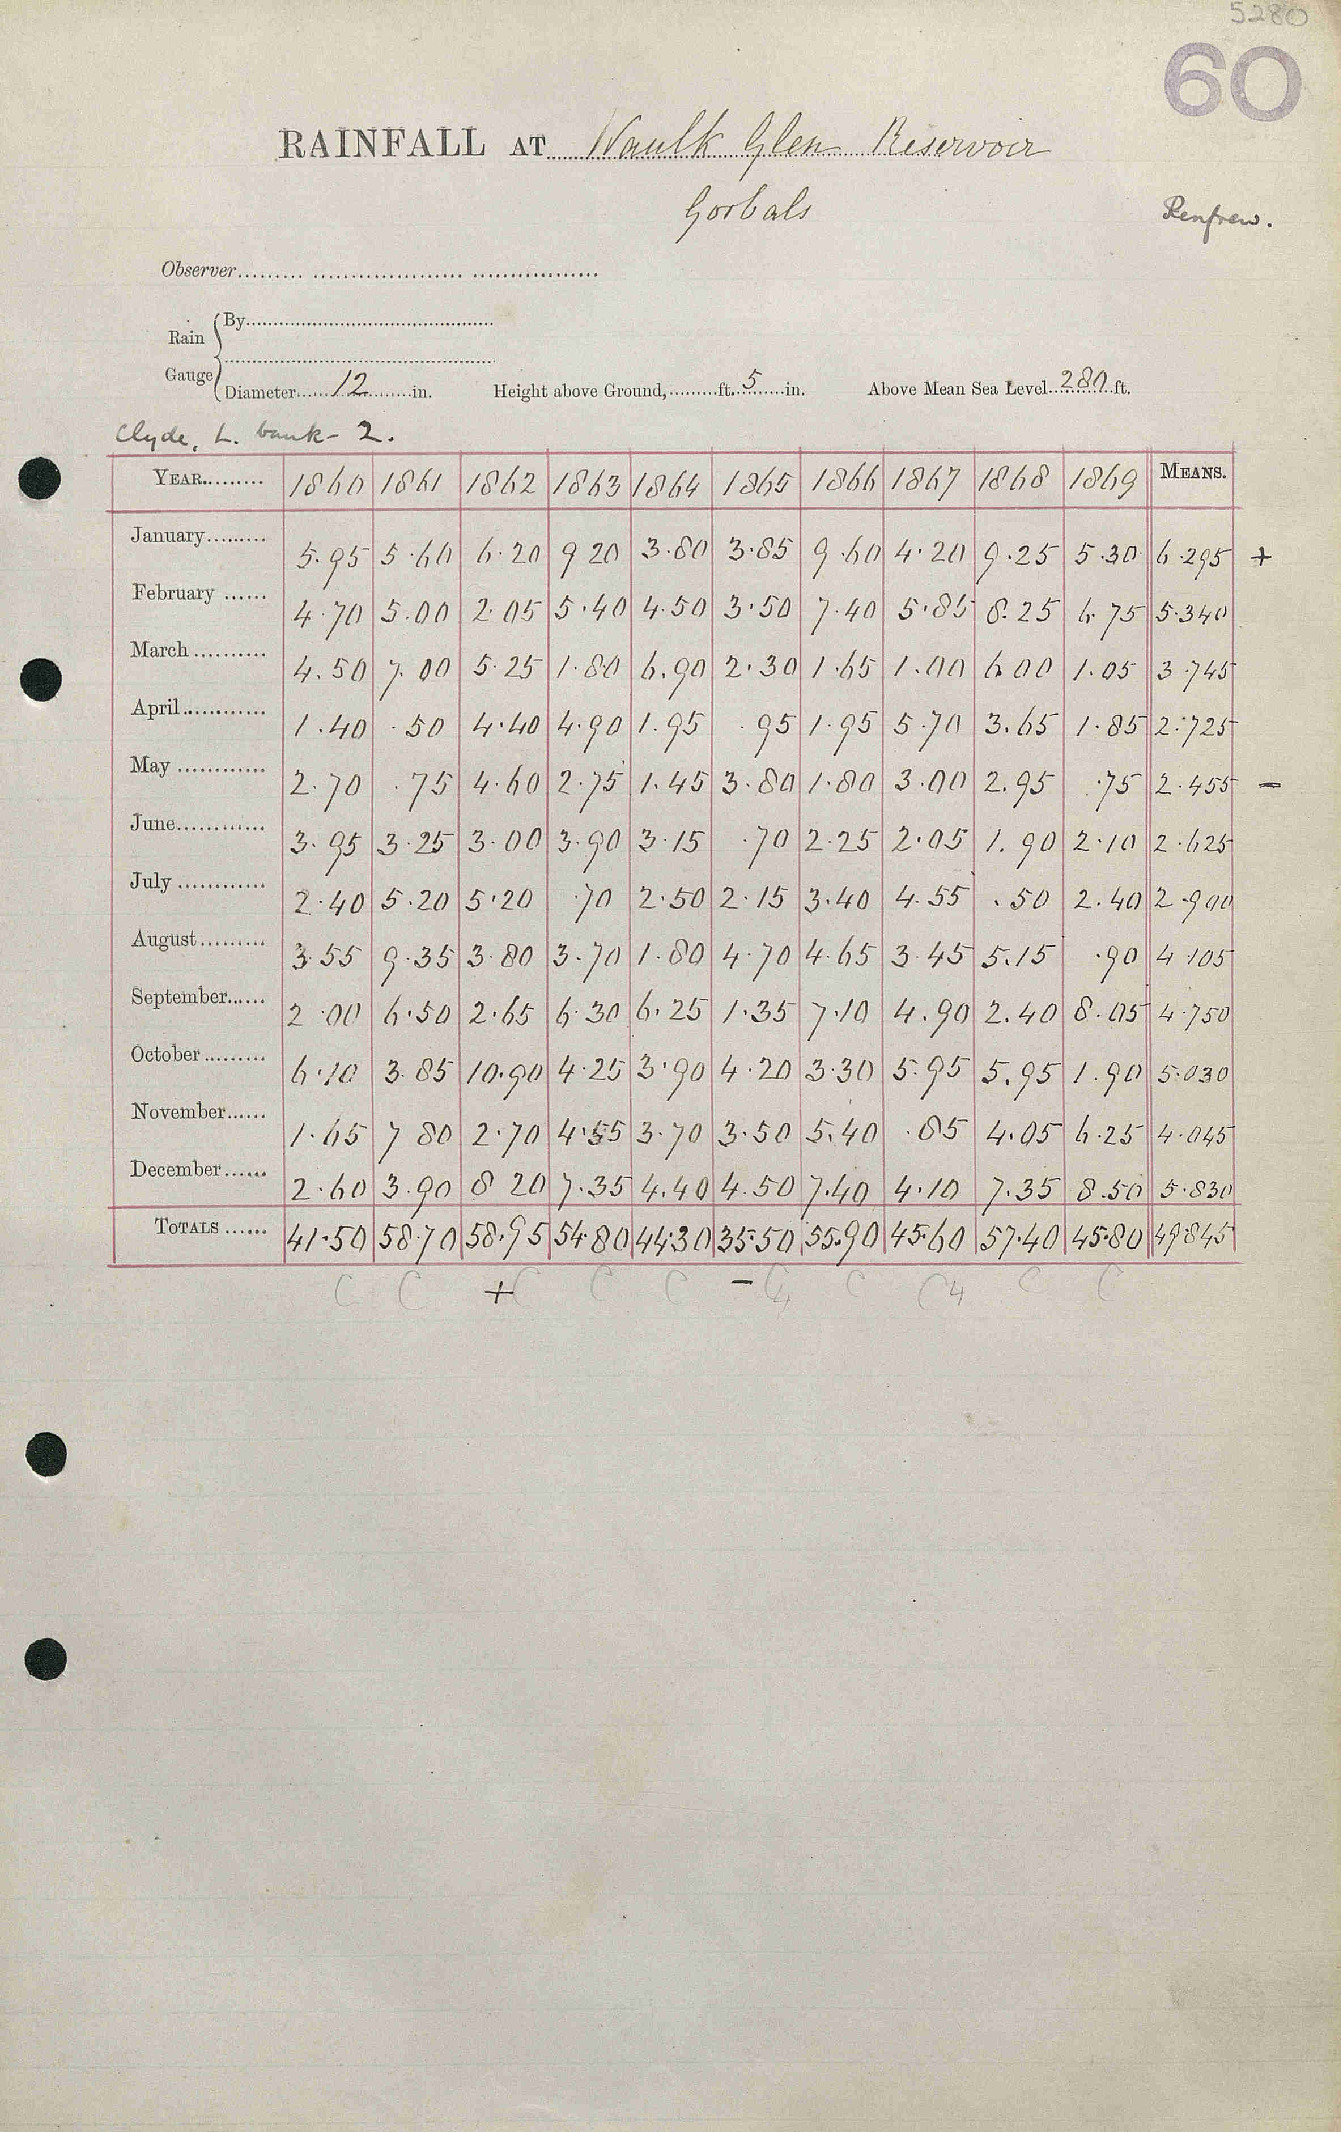 5280
60
RAINFALL AT Waulk Glen Reservoir
Gorbals
Renfrew.
Observer
Rain Gauge
By
Diameter 12 in. Height above Ground, ft. 5 in. Above Mean Sea Level 280 ft.
Clyde, L. bank - 2.
YEAR 1860 1861 1862 1863 1864 1865 1866 1867 1868 1869 MEANS.
January 5.95 5.60 6.20 9.20 3.80 3.85 9.60 4.20 9.25 5.30 6.295 +
February 4.70 5.00 2.05 5.40 4.50 3.50 7.40 5.85 8.25 6.75 5.340
March 4.50 7.00 5.25 1.80 6.90 2.30 1.65 1.00 6.00 1.05 3.745
April 1.40 .50 4.40 4.90 1.95 .95 1.95 5.70 3.65 1.85 2.725
May 2.70 .75 4.60 2.75 1.45 3.80 1.80 3.00 2.95 .75 2.455 -
June 3.95 3.25 3.00 3.90 3.15 .70 2.25 2.05 1.90 2.10 2.625
July 2.40 5.20 5.20 .70 2.50 2.15 3.40 4.55 .50 2.40 2.900
August 3.55 9.35 3.80 3.70 1.80 4.70 4.65 3.45 5.15 .90 4.105
September 2.00 6.50 2.65 6.30 6.25 1.35 7.10 4.90 2.40 8.05 4.750
October 6.10 3.85 10.90 4.25 3.90 4.20 3.30 5.95 5.95 1.90 5.030
November 1.65 7.80 2.70 4.55 3.70 3.50 5.40 .85 4.05 6.25 4.045
December 2.60 3.90 8.20 7.35 4.40 4.50 7.40 4.10 7.35 8.50 5.830
TOTALS 41.50 58.70 58.95 54.80 44.30 35.50 55.90 45.60 57.40 45.80 49.845
C C + C C C - C4 C C4 C C